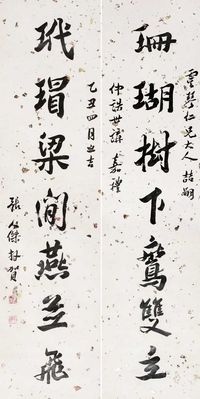 虞琴仁兄大人 喆嗣
珊瑚樹下鸞雙立
仲喆世講 嘉禮
乙丑四月之吉
玳瑁梁間燕並飛
張人傑敬賀